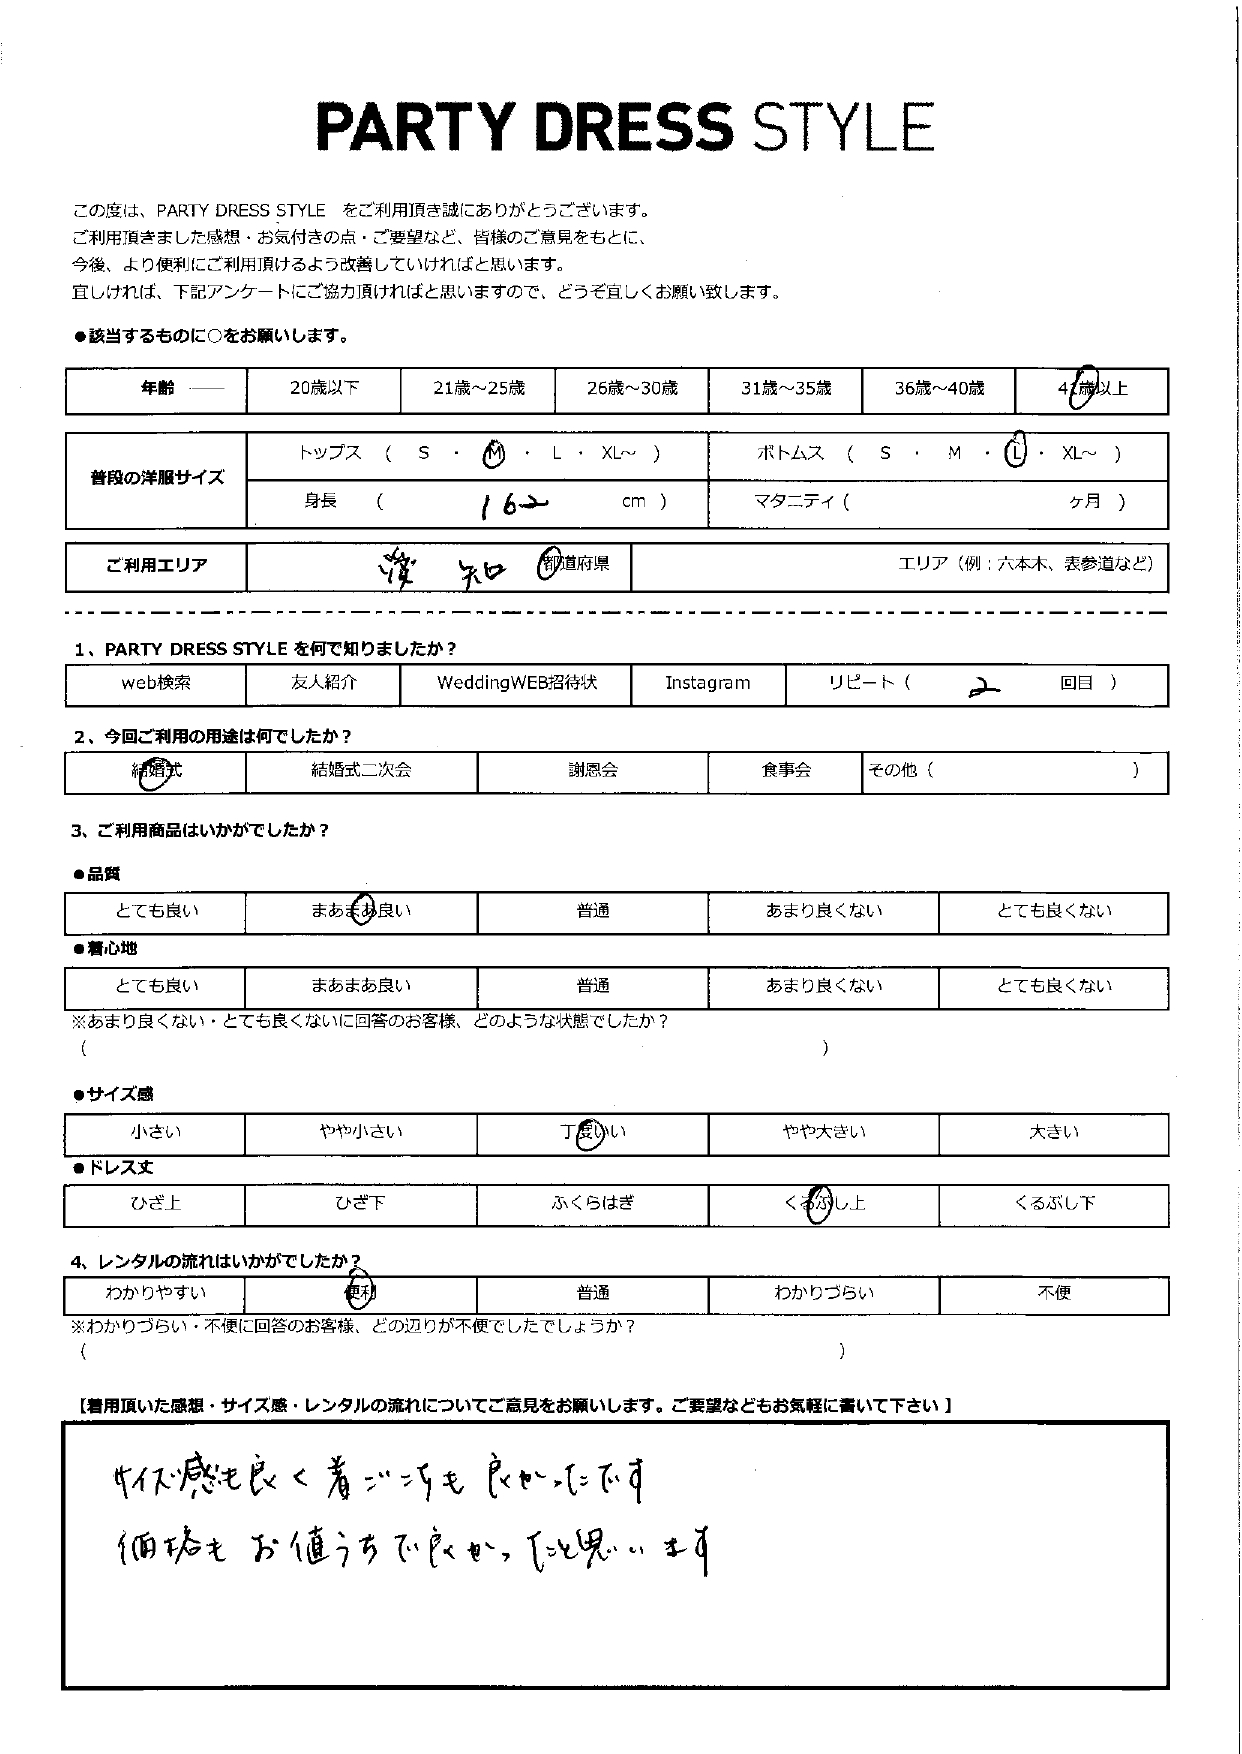 PARTY DRESS STYLE
この度は、PARTY DRESS STYLE をご利用頂き誠にありがとうございます。
ご利用頂きました感想・お気付きの点・ご要望など、皆様のご意見をもとに、
今後、より便利にご利用頂けるよう改善していければと思います。
宜しければ、下記アンケートにご協力頂ければと思いますので、どうぞ宜しくお願い致します。
●該当するものに○をお願いします。
年齢 20歳以下 21歳～25歳 26歳～30歳 31歳～35歳 36歳～40歳 41歳以上
普段の洋服サイズ
トップス ( S ・ M ・ L ・ XL～ ) ボトムス ( S ・ M ・ L ・ XL～ )
身長 ( 162 cm ) マタニティ ( ヶ月 )
ご利用エリア 知 都道府県 エリア（例：六本木、表参道など）
1、PARTY DRESS STYLE を何で知りましたか？
web検索 友人紹介 WeddingWEB招待状 Instagram リピート ( 2 回目 )
2、今回ご利用の用途は何でしたか？
結婚式 結婚式二次会 謝恩会 食事会 その他 ( )
3、ご利用商品はいかがでしたか？
●品質
とても良い まあまあ良い 普通 あまり良くない とても良くない
●着心地
とても良い まあまあ良い 普通 あまり良くない とても良くない
※あまり良くない・とても良くないに回答のお客様、どのような状態でしたか？
( )
●サイズ感
小さい やや小さい 丁度いい やや大きい 大きい
●ドレス丈
ひざ上 ひざ下 ふくらはぎ くるぶし上 くるぶし下
4、レンタルの流れはいかがでしたか？
わかりやすい 便利 普通 わかりづらい 不便
※わかりづらい・不便に回答のお客様、どの辺りが不便でしたでしょうか？
( )
【着用頂いた感想・サイズ感・レンタルの流れについてご意見をお願いします。ご要望などもお気軽に書いて下さい】
サイズ感も良く着ごこちも良かったです
価格もお値うちで良かったと思います